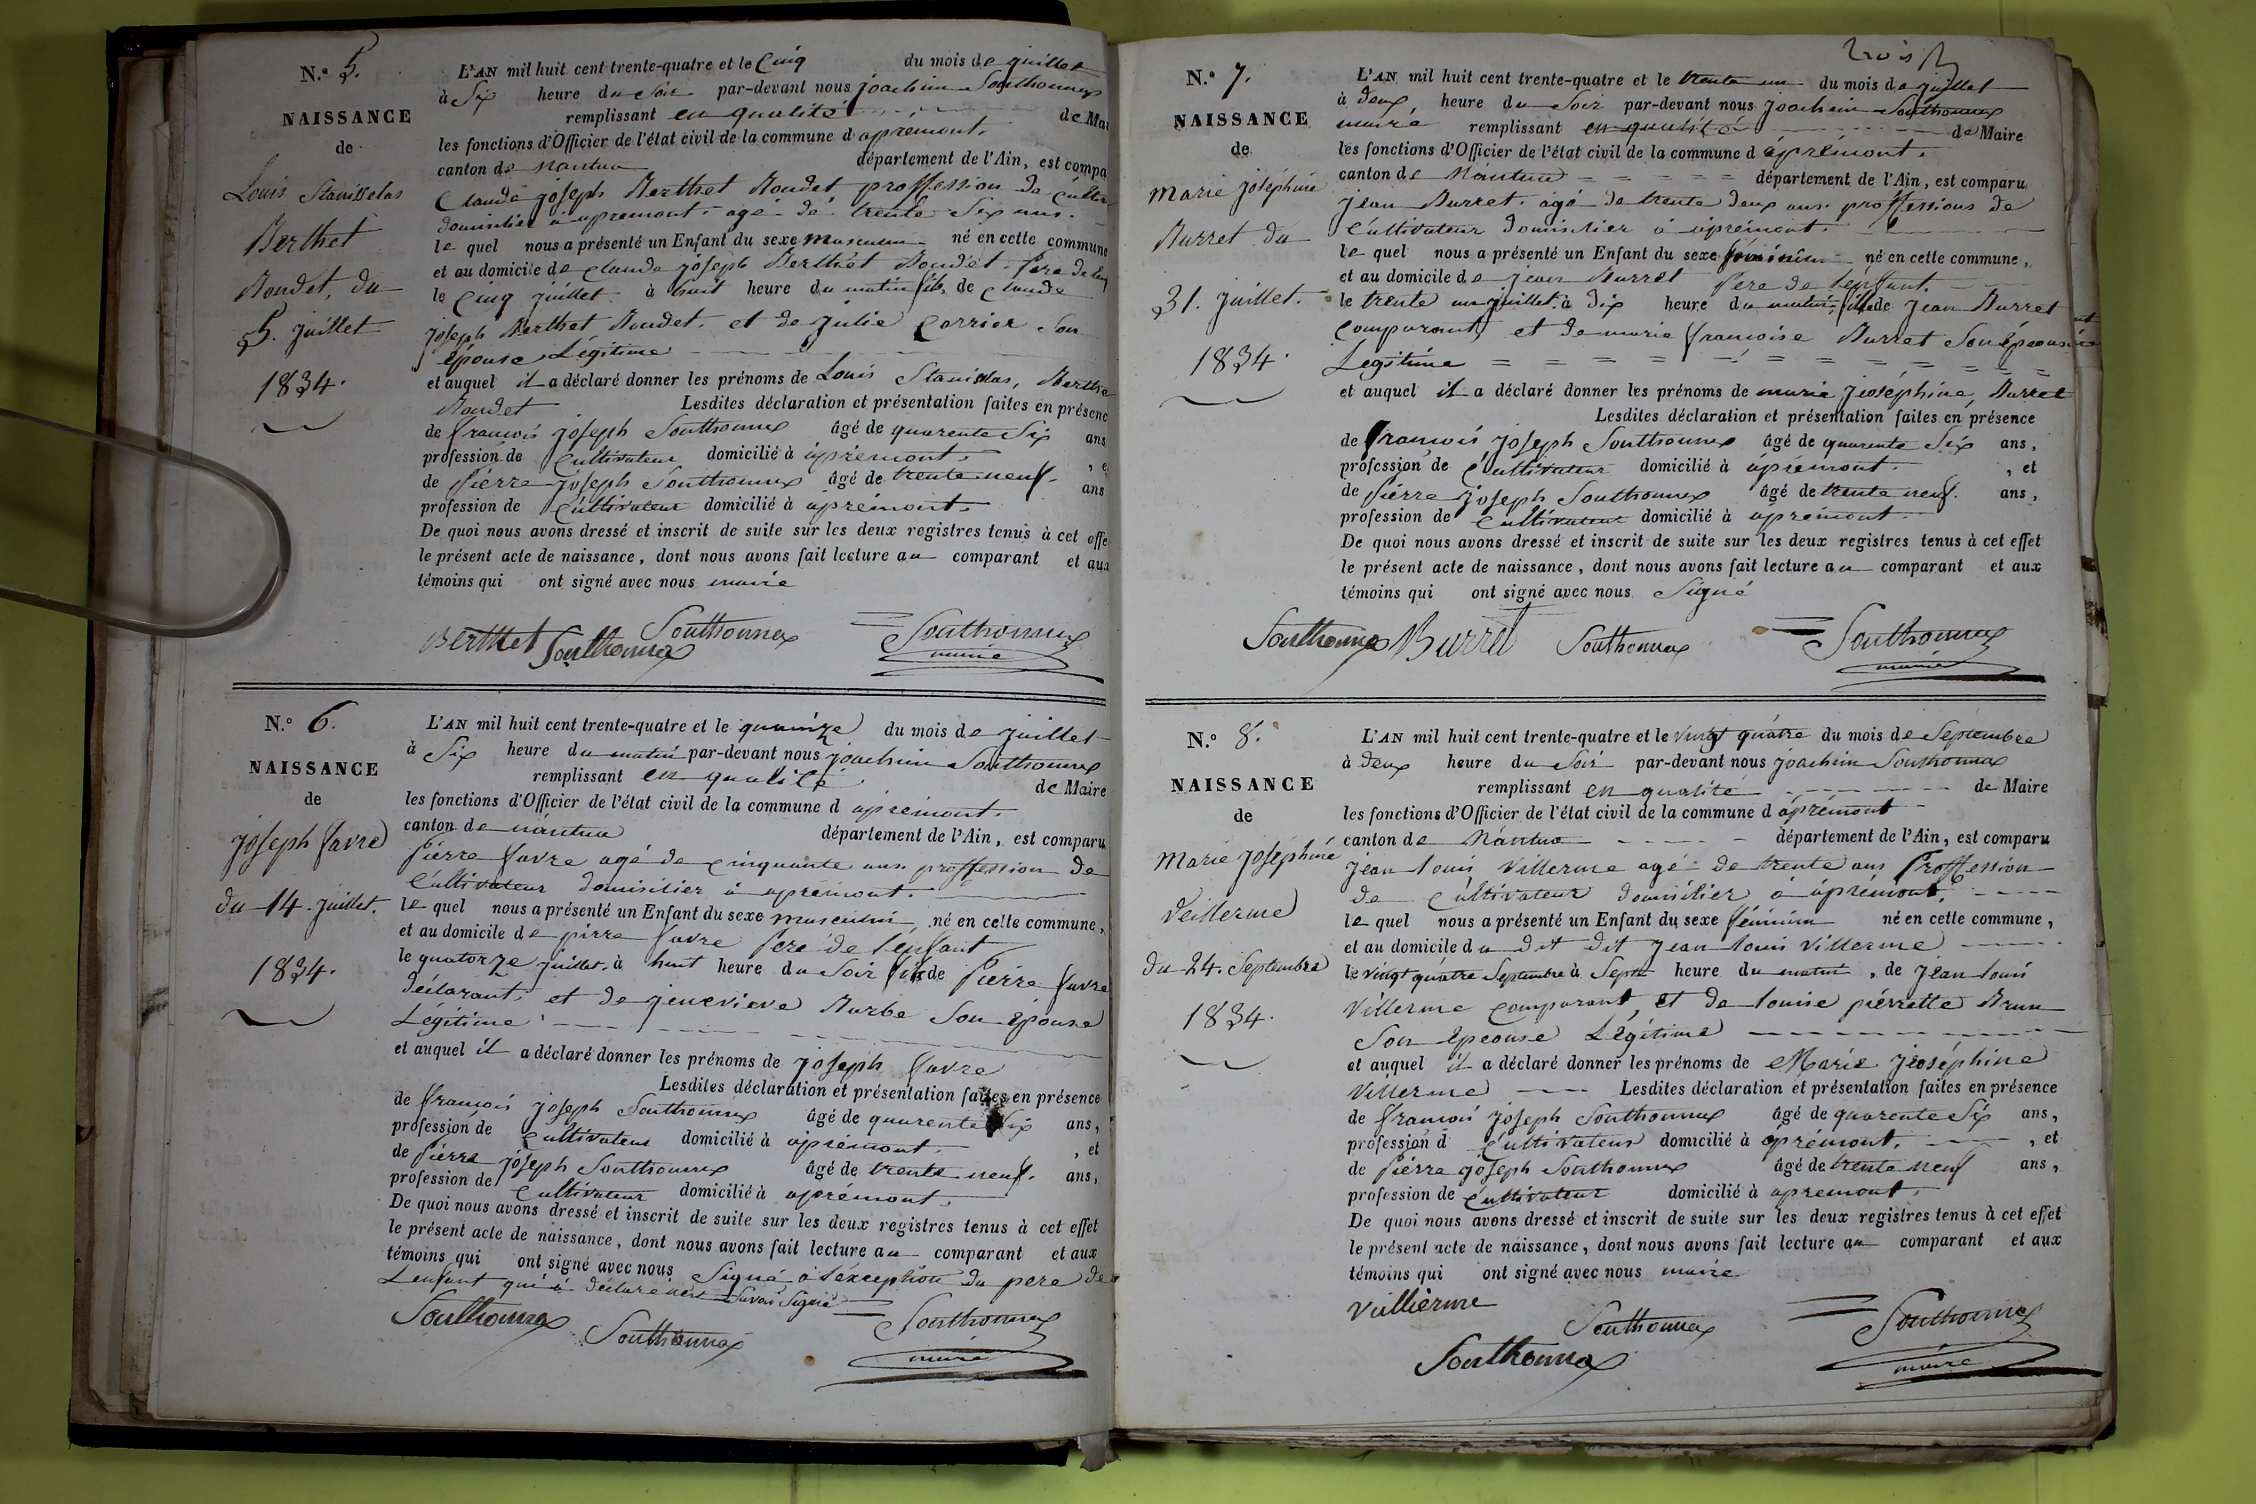 N.º 5.
NAISSANCE
de
Louis Stanisselas
Berthet
Boudet, du
5. juillet
1834.
L'AN mil huit cent trente-quatre et le Cinq du mois de juillet
à Six heure du Soir par-devant nous joachim Southonnax
remplissant en qualité de Mai
les fonctions d'Officier de l'état civil de la commune d'aprémont.
canton de Nantua département de l'Ain, est compa
Claude joseph Berthet Boudet proffession de Cultiv
domisilier à apremont. agé de trente Six ans.
le quel nous a présenté un Enfant du sexe masculin né en cette commune
et au domicile de Claude joseph Berthet Boudet. Pere de
le Cinq juillet à huit heure du matin fils de Claude
joseph Berthet Boudet. et de julie Carrier Son
épouse Légitime
et auquel il a déclaré donner les prénoms de Louis Stanislas, Berthe
Boudet Lesdites déclaration et présentation faites en présenc
de francois joseph Southonnax âgé de quarente Six ans
profession de Cultivateur domicilié à aprémont. , e
de Pierre joseph Southonnax âgé de trente neuf. ans
profession de Cultivateur domicilié à aprémont.
De quoi nous avons dressé et inscrit de suite sur les deux registres tenus à cet effe
le présent acte de naissance, dont nous avons fait lecture au comparant et aux
témoins qui ont signé avec nous maire
Berthet Southonnax Southonnax Southonnax
maire
N.º 6.
NAISSANCE
de
joseph favre
du 14. juillet.
1834.
L'AN mil huit cent trente-quatre et le quainze du mois de juillet
à Six heure du matin par-devant nous joachim Southonnax
remplissant en qualité de Maire
les fonctions d'Officier de l'état civil de la commune d'aprémont.
canton de nantua département de l'Ain, est comparu
Pierre favre agé de cinquante ans. proffession de
Cultivateur domisilier à apremont.
le quel nous a présenté un Enfant du sexe masculin né en cette commune,
et au domicile de pirre favre Pere de l'enfant
le quatorze juillet. à huit heure du Soir fils de Pierre favre
déclarant. et de jenevieve Burbe Son épouse
Légitime
et auquel il a déclaré donner les prénoms de joseph favre
Lesdites déclaration et présentation faites en présence
de francois joseph Southonnax âgé de quarente Six ans,
profession de Cultivateur domicilié à aprémont. , et
de Pierre joseph Southonnax âgé de trente neuf. ans,
profession de Cultivateur domicilié à aprémont.
De quoi nous avons dressé et inscrit de suite sur les deux registres tenus à cet effet
le présent acte de naissance, dont nous avons fait lecture au comparant et aux
témoins qui ont signé avec nous Signé à l'éxception du pere de
L'enfant qui à déclaré Savoir Signé
Southonnax Southonnax Southonnax
maire
trois
N.º 7.
NAISSANCE
de
Marie joséphine
Burret du
31. juillet.
1834.
L'AN mil huit cent trente-quatre et le trente un du mois de juillet
à deux, heure du Soir par-devant nous joachim Southonnax
maire remplissant en qualité de Maire
les fonctions d'Officier de l'état civil de la commune d'aprémont.
canton de Nantua département de l'Ain, est comparu
jean Burret. agé de trente deux ans. proffessions de
Cultivateur domisilier à aprémont.
le quel nous a présenté un Enfant du sexe féminin né en cette commune,
et au domicile de jean Burret Pere de l'enfant.
le trente un juillet. à dix heure du matin, fille de jean Burret
comparant, et de marie francoise Burret Son épeouse
Legitime
et auquel il a déclaré donner les prénoms de marie jioséphine, Burret
Lesdites déclaration et présentation faites en présence
de francois joseph Southonnax âgé de quarente Six ans,
profession de Cultivateur domicilié à aprémont. , et
de Pierre joseph Southonnax âgé de trente neuf. ans,
profession de Cultivateur domicilié à aprémont.
De quoi nous avons dressé et inscrit de suite sur les deux registres tenus à cet effet
le présent acte de naissance, dont nous avons fait lecture au comparant et aux
témoins qui ont signé avec nous Signé
Southonnax Burret Southonnax Southonnax
maire
N.º 8.
NAISSANCE
de
Marie Joséphine
Veillerme
du 24. Septembre
1834.
L'AN mil huit cent trente-quatre et le vingt quatre du mois de Septembre
à deux heure du Soir par-devant nous joachim Southonnax
remplissant en qualité de Maire
les fonctions d'Officier de l'état civil de la commune d'aprémont
canton de Nantua département de l'Ain, est comparu
jean louis Villerme agé de trente ans Proffession
de Cultivateur domisilier à aprémont.
le quel nous a présenté un Enfant du sexe féminin né en cette commune,
et au domicile du dit dit jean louis Villerme
le vingt quatre Septembre à Septe heure du matin, de jean louis
Villerme comparant et de louise piérrette Brun
Son épeouse Légitime
et auquel il a déclaré donner les prénoms de Marie jioséphine
Villerme Lesdites déclaration et présentation faites en présence
de francois joseph Southonnax âgé de quarente Six ans,
profession d Cultivateur domicilié à aprémont. , et
de Piérre joseph Southonnax âgé de trente neuf ans,
profession de Cultivateur domicilié à apremont.
De quoi nous avons dressé et inscrit de suite sur les deux registres tenus à cet effet
le présent acte de naissance, dont nous avons fait lecture au comparant et aux
témoins qui ont signé avec nous maire
Vuillierme Southonnax Southonnax
Southonnax maire